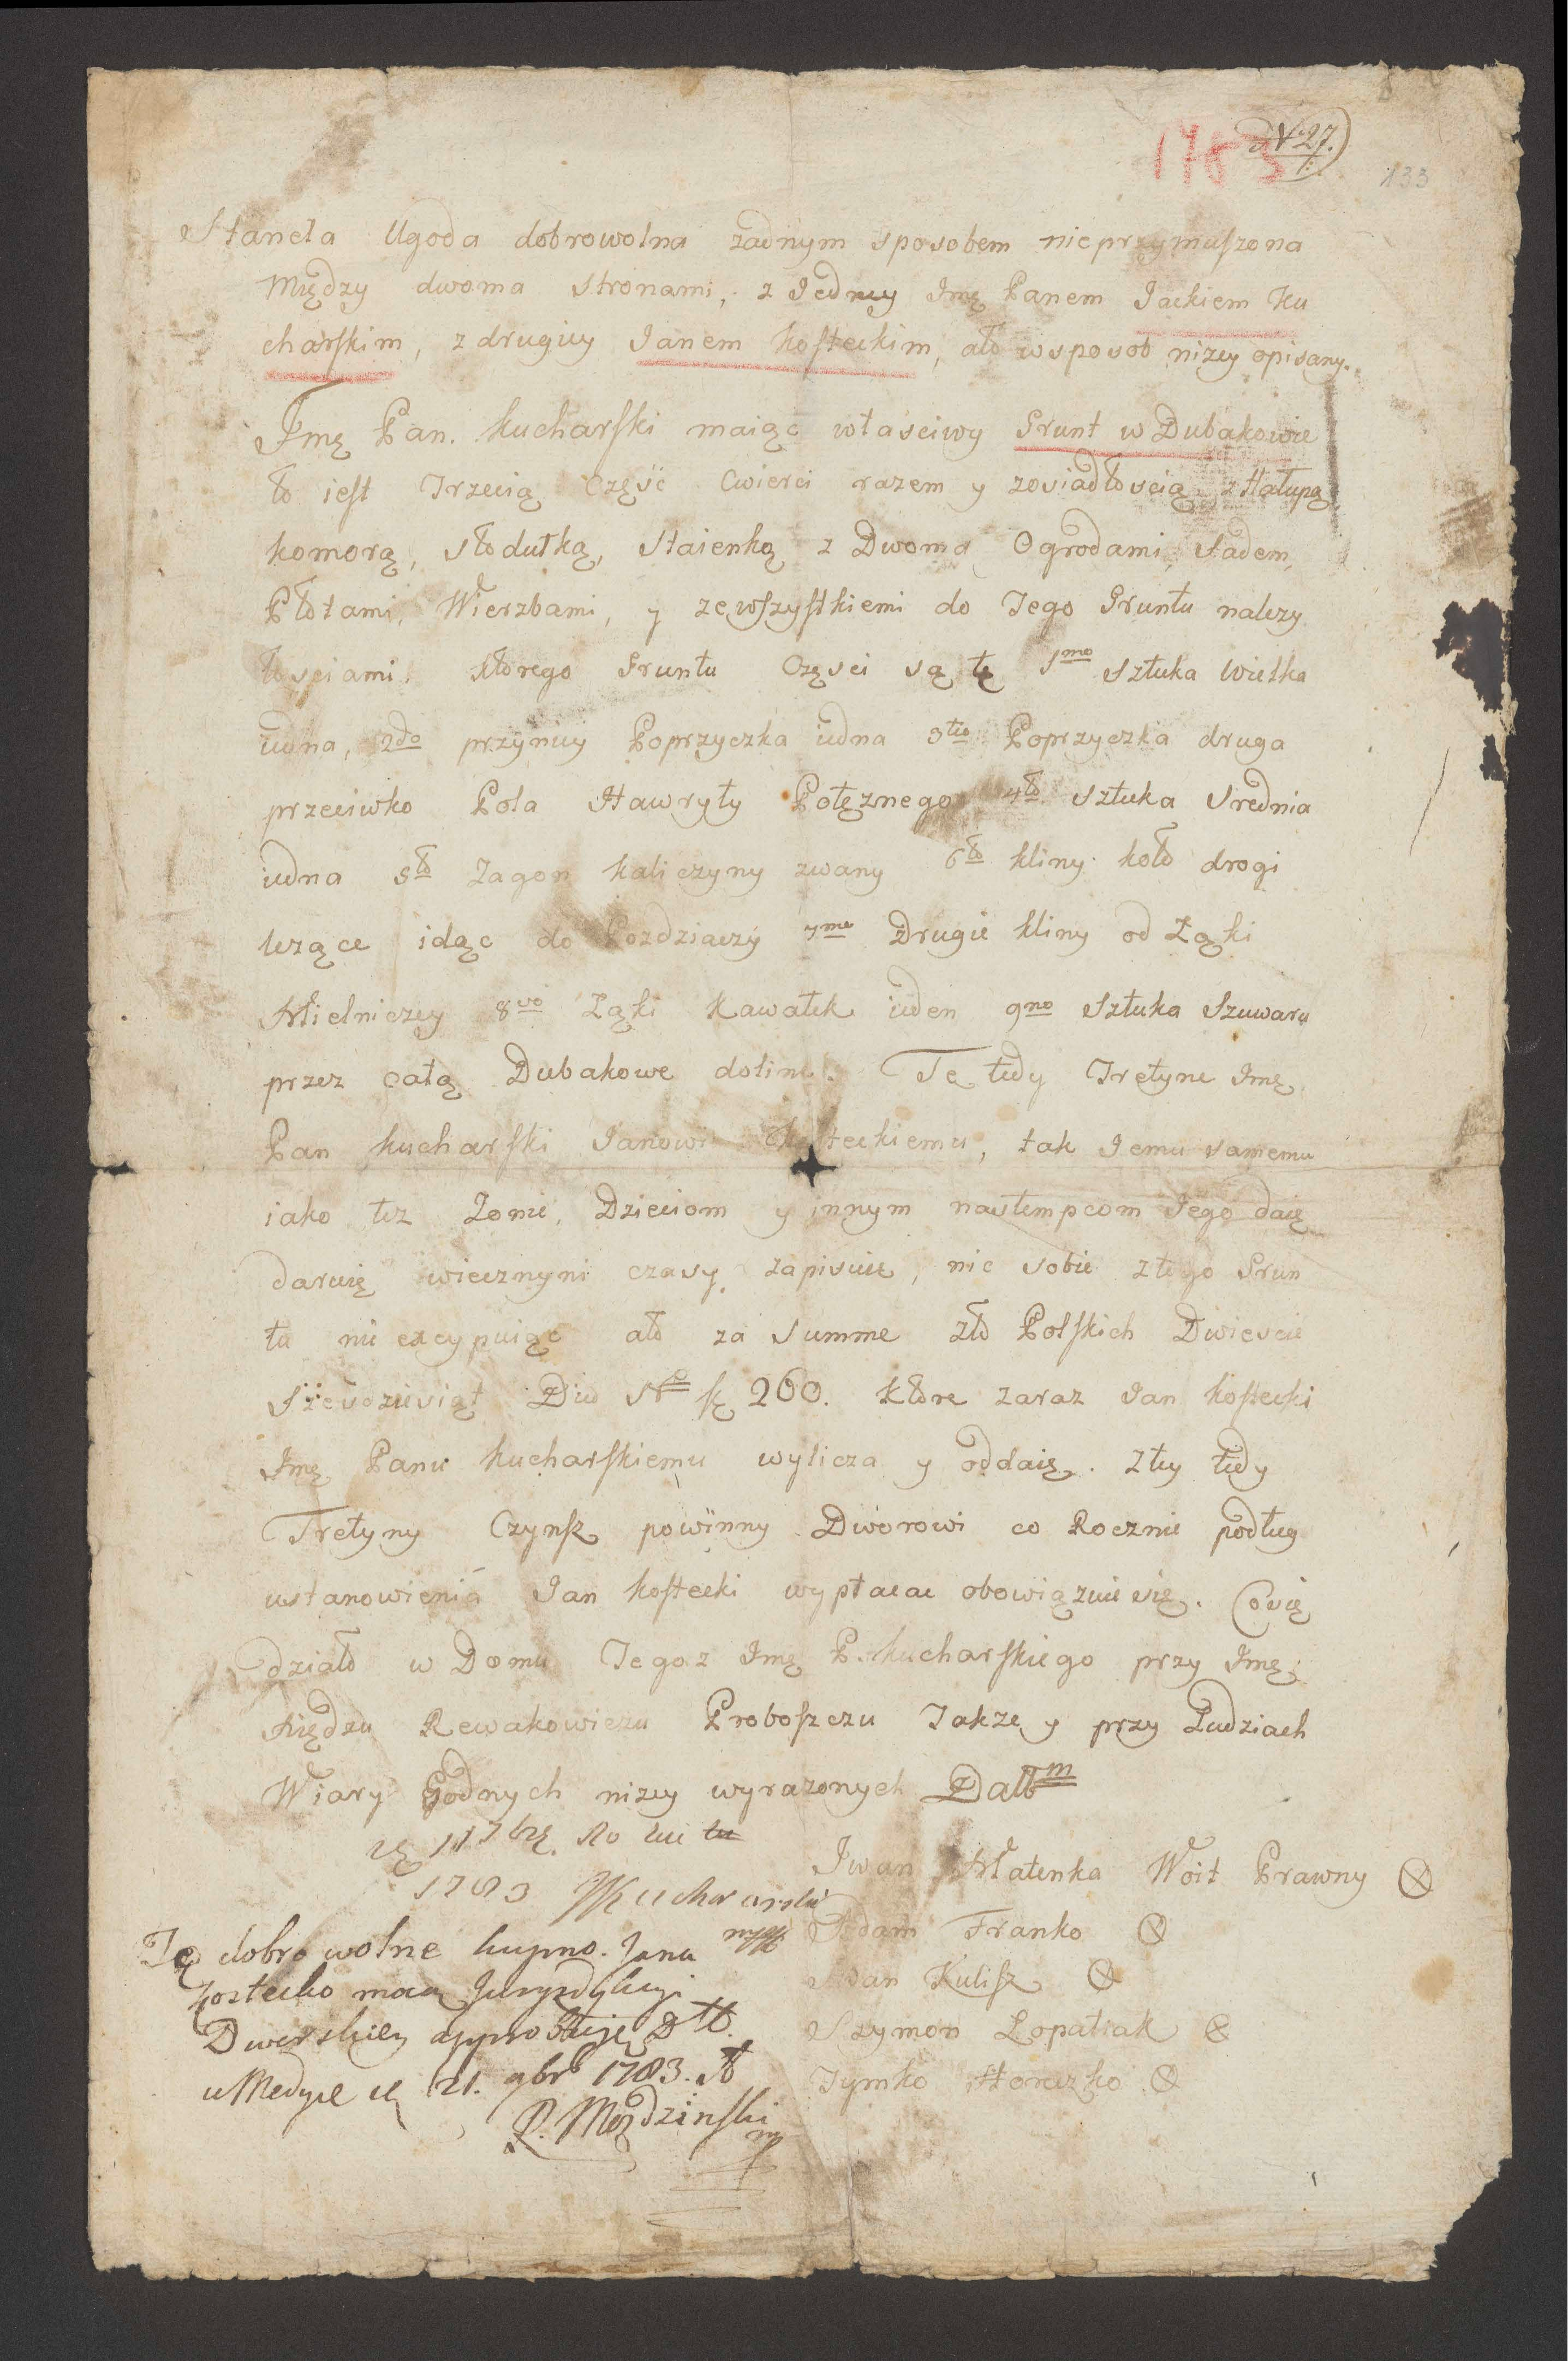 N 27.
1783
133
Stanęła Ugoda dobrowolna żadnym sposobem nieprzymuszona
Między dwoma stronami, z Jedney Jmę Panem Jackiem Ku
charskim, z drugiey Janem Kosteckim, ato wsposob niżey opisany.
Jmę Pan. Kucharski maiąc właściwy Grunt w Dubakowie
to iest Trzecią Część Cwierci razem y zosiadłoscią, z Hałupą
komorą, stodułką, Staienką z Dwoma Ogrodami, Sadem,
Płotami, Wierzbami, y zewszystkiemi do Tego Gruntu nalezy
tosciami. ktorego Gruntu Częsci są tę 1mo Sztuka wielka
iedna, 2do przyniey Poprzyczka iedna 3tio Poprzyczka druga
przeciwko Pola Hawryły Potęznego 4to sztuka Srednia
iedna 5to Zagon Kaliczyny zwany 6to kliny koło drogi
lezące idąc do Pozdziaczy 7me Drugie kliny od Łąki
Mielniczey 8vo Łąki Kawałek ieden 9no Sztuka Szuwaru
przez całą Dubakowe doline. Tę tedy Tretyne Jmę
Pan Kucharski Janowi Kosteckiemu, tak Jemu samemu
iako tez Zonie, Dzieciom y innym nastempcom Jego daię
daruię wiecznymi czasy zapisuie, nic sobie z tego Grun
tu nie excypuiąc ato za Summe zło Polskich Dwiescie
Szescdziesiąt Dico No 260. ktore zaraz Jan Kostecki
Jmę Panu Kucharskiemu wylicza y oddaię. z tey tedy
Tretyny Czynsz powinny Dworowi co Rocznie podług
ustanowienia Jan Kostecki wypłacac obowiązuie się. Co się
działo w Domu Tegoz Jmę P. Kucharskiego przy Jmę
Xiędzu Rewakowiczu Proboszczu Takze y przy Ludziach
Wiary Godnych nizey wyrazonych Dattm
11 7brę
1783 Kucharski
mpp
Iwan Małenka Woit Prawny
Adam Franko
Iwan Kulisz
Szymon Łopatiak
Tymko Horazko
Tę dobrowolne kupno Jana
Kostecko mocą Juryzdykcyi
Dworskiey approbuję Dtt.
w Medyce 21. 9brs 1783. A
P. Mozdzinski
mp